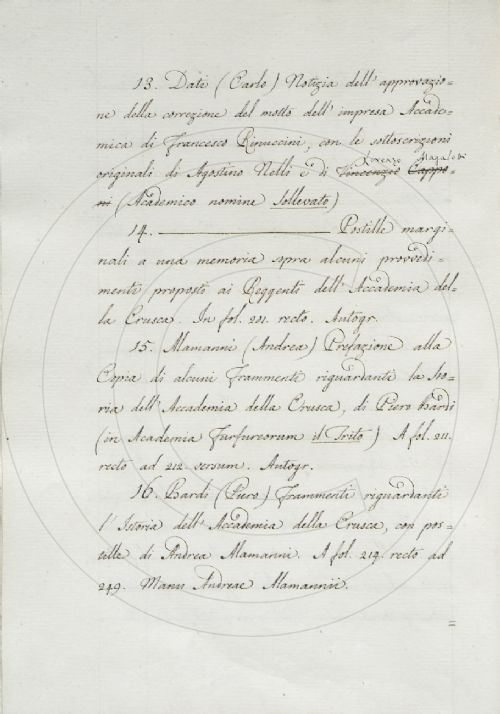 13. Dati (Carlo) Notizia dell' approvazio=
ne della correzione del motto dell' impresa Accade=
mica di Francesco Rinuccini, con le sottoscrizioni
originali di Agostino Nelli e di Vincenzio Cappo=
Lorenzo Magalotti
ni (Academico nomine Sollevato)
14. ——— Postille margi=
nali a una memoria sopra alcuni provvedi=
menti proposti ai Reggenti dell' Accademia del=
la Crusca. In fol. 221. recto. Autogr.
15. Alamanni (Andrea) Prefazione alla
Copia di alcuni Frammenti riguardanti la Sto=
ria dell' Accademia della Crusca, di Piero Bardi
(in Academia Furfureorum il Trito) A fol. 211.
recto ad 212 versum. Autogr.
16. Bardi (Piero) Frammenti riguardanti
l' Istoria dell' Accademia della Crusca, con pos=
tille di Andrea Alamanni. A fol. 214. recto ad
249. Manu Andreae Alamannii.
=